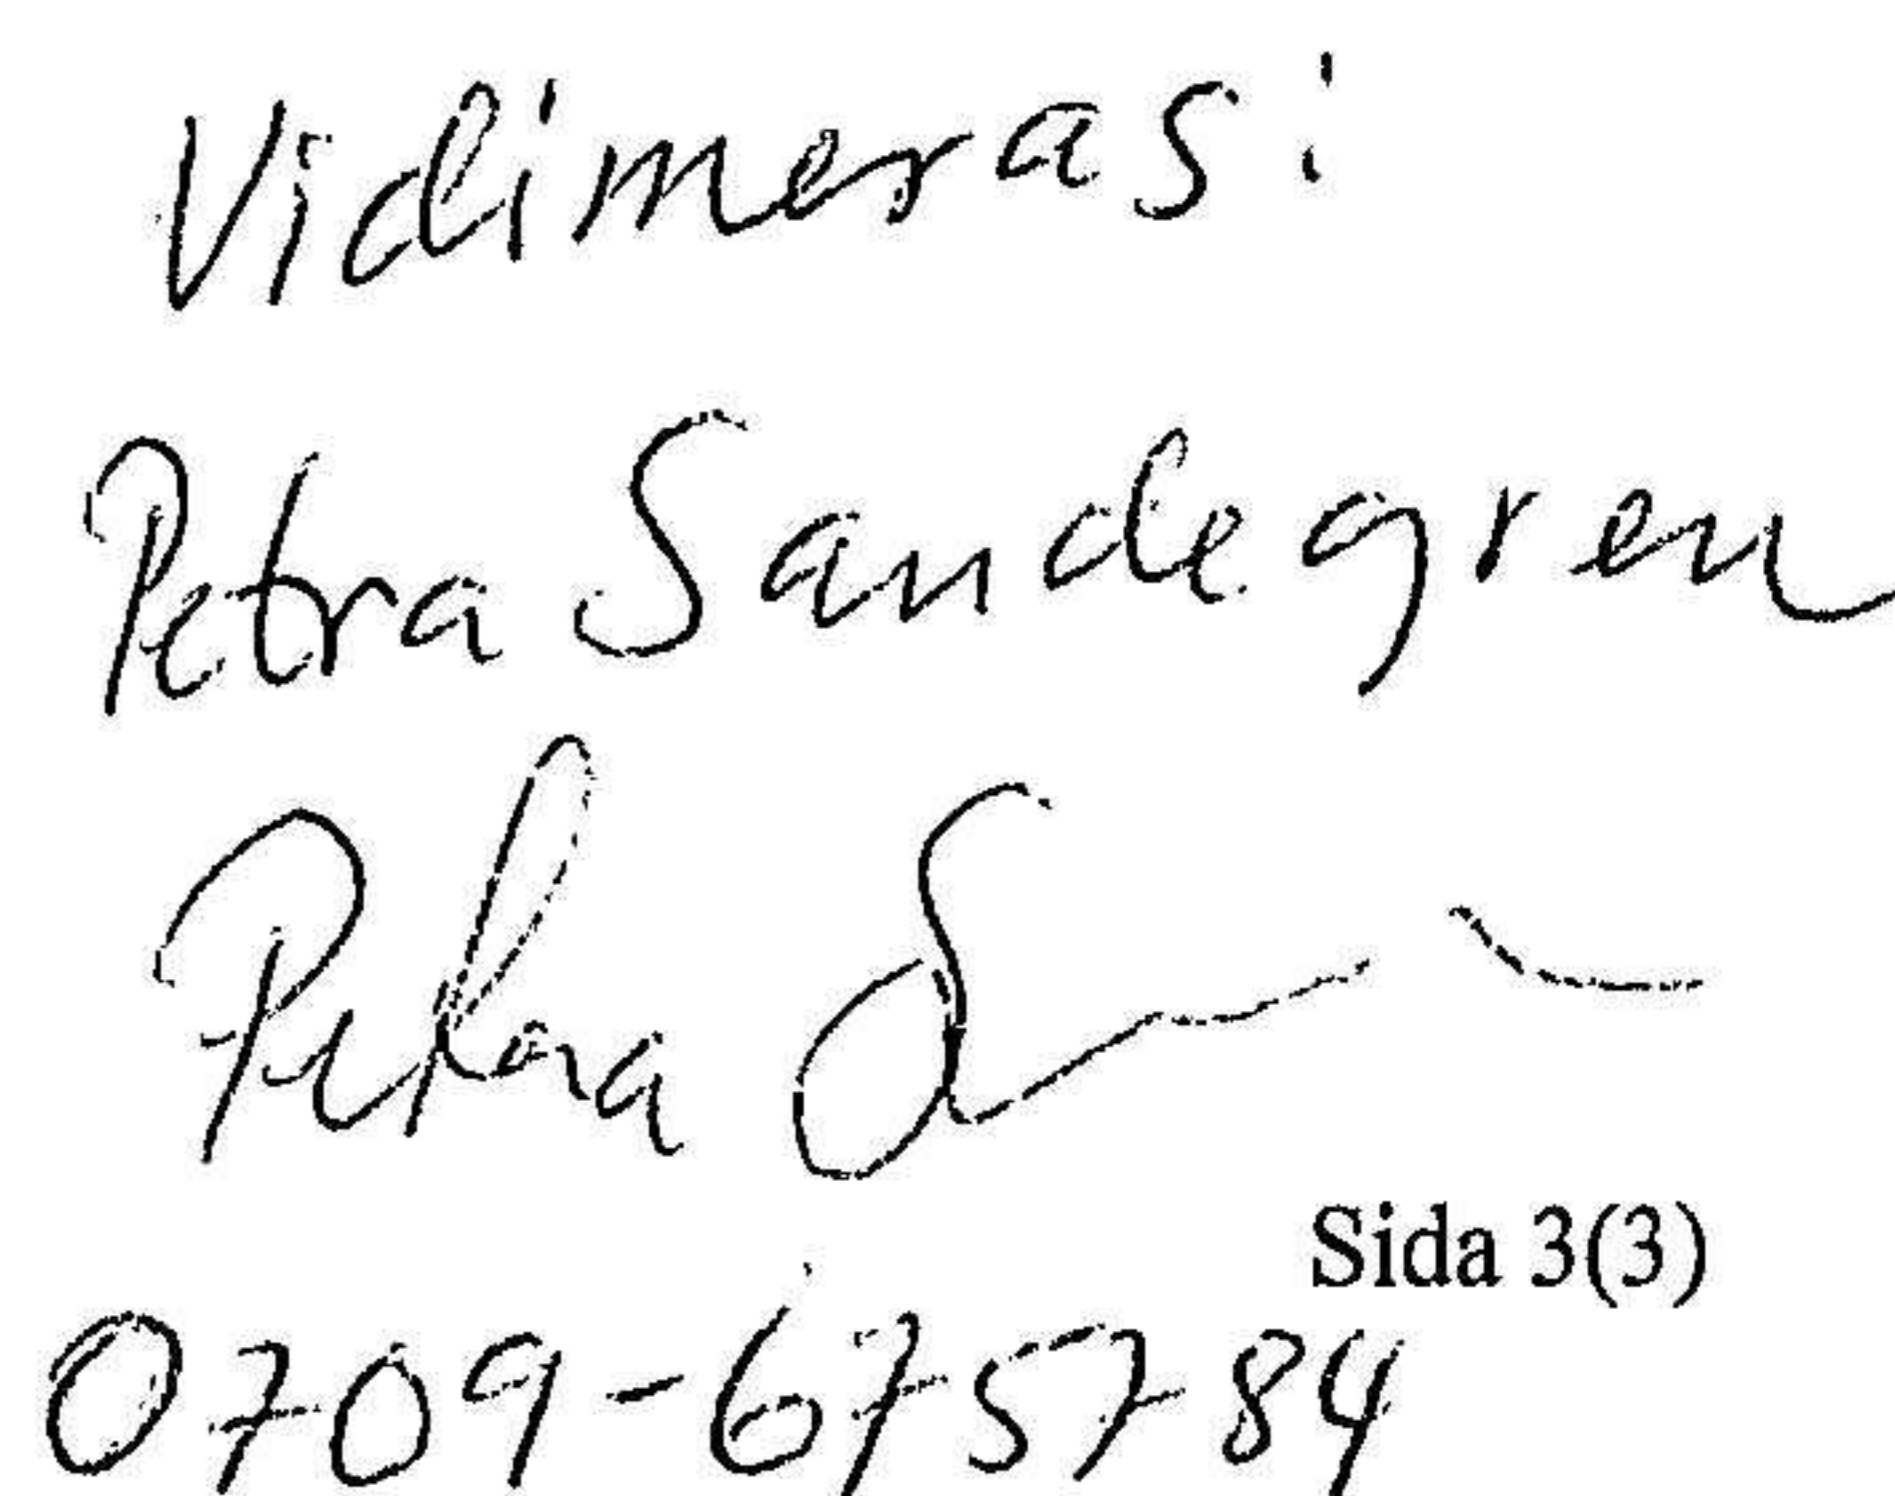 Vidimeras:
Petra Sandegren
Petra S
Sida 3(3)
0709-675784